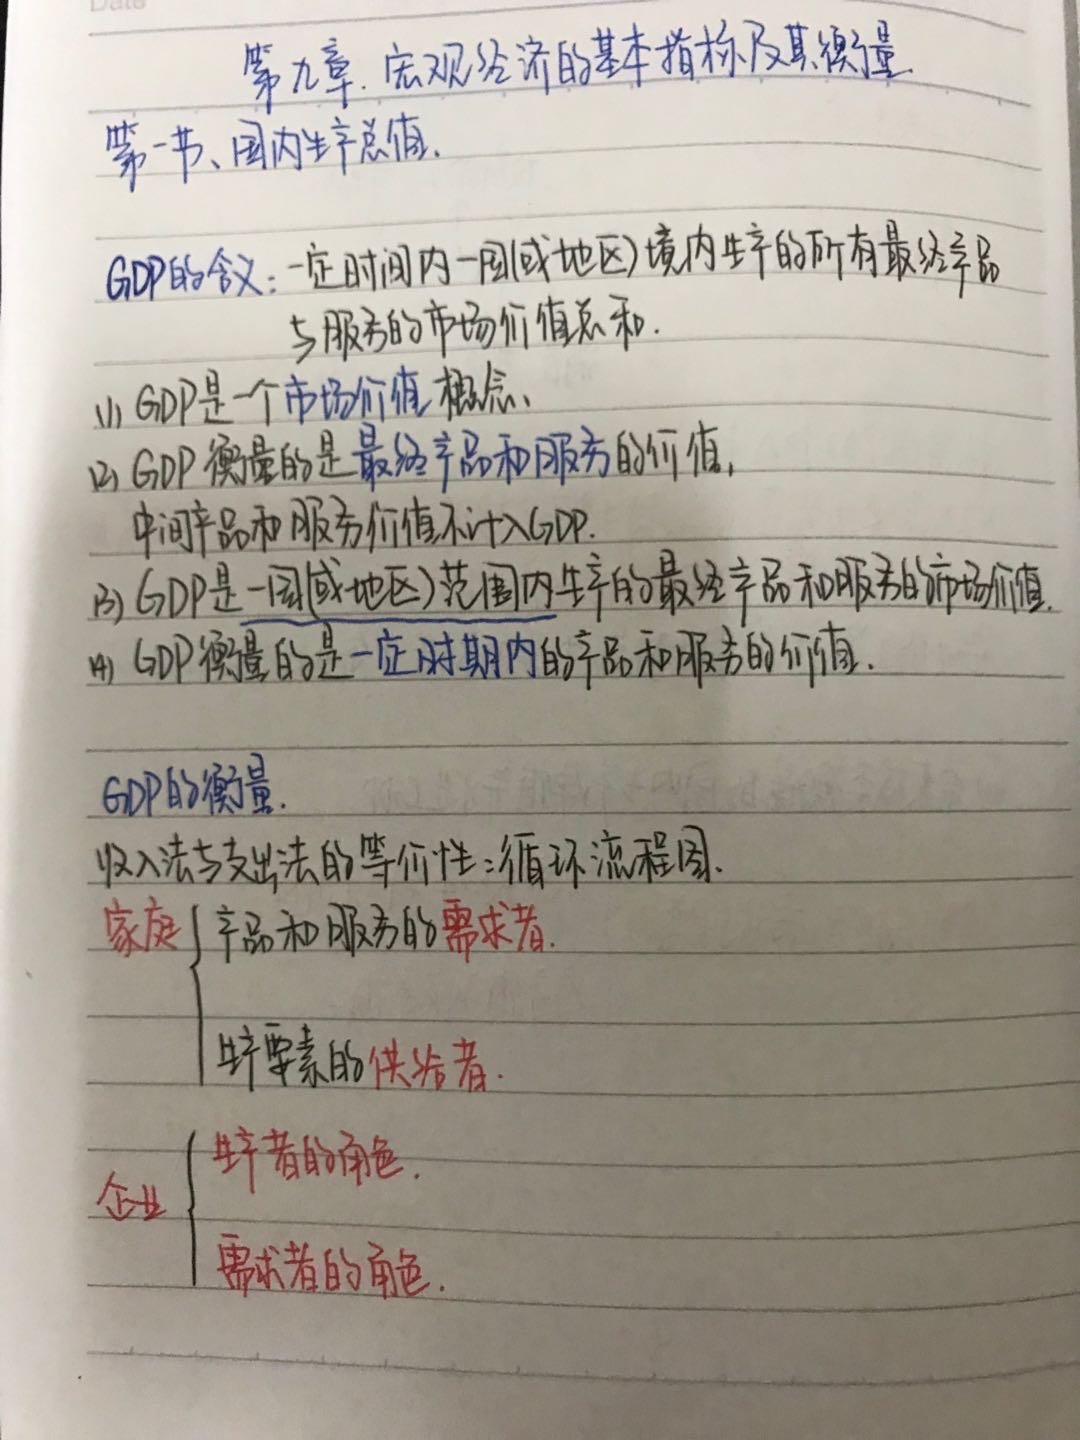 Date
第九章.宏观经济的基本指标及其衡量.
第一节、国内生产总值.
GDP的含义:一定时间内一国(或地区)境内生产的所有最终产品
与服务的市场价值总和.
(1) GDP是一个市场价值概念、
(2) GDP衡量的是最终产品和服务的价值,
中间产品和服务价值不计入GDP.
(3) GDP是一国(或地区)范围内生产的最终产品和服务的市场价值.
(4) GDP衡量的是一定时期内的产品和服务的价值.
GDP的衡量.
收入法与支出法的等价性:循环流程图.
家庭 { 产品和服务的需求者.
生产要素的供给者.
企业 { 生产者的角色.
需求者的角色.